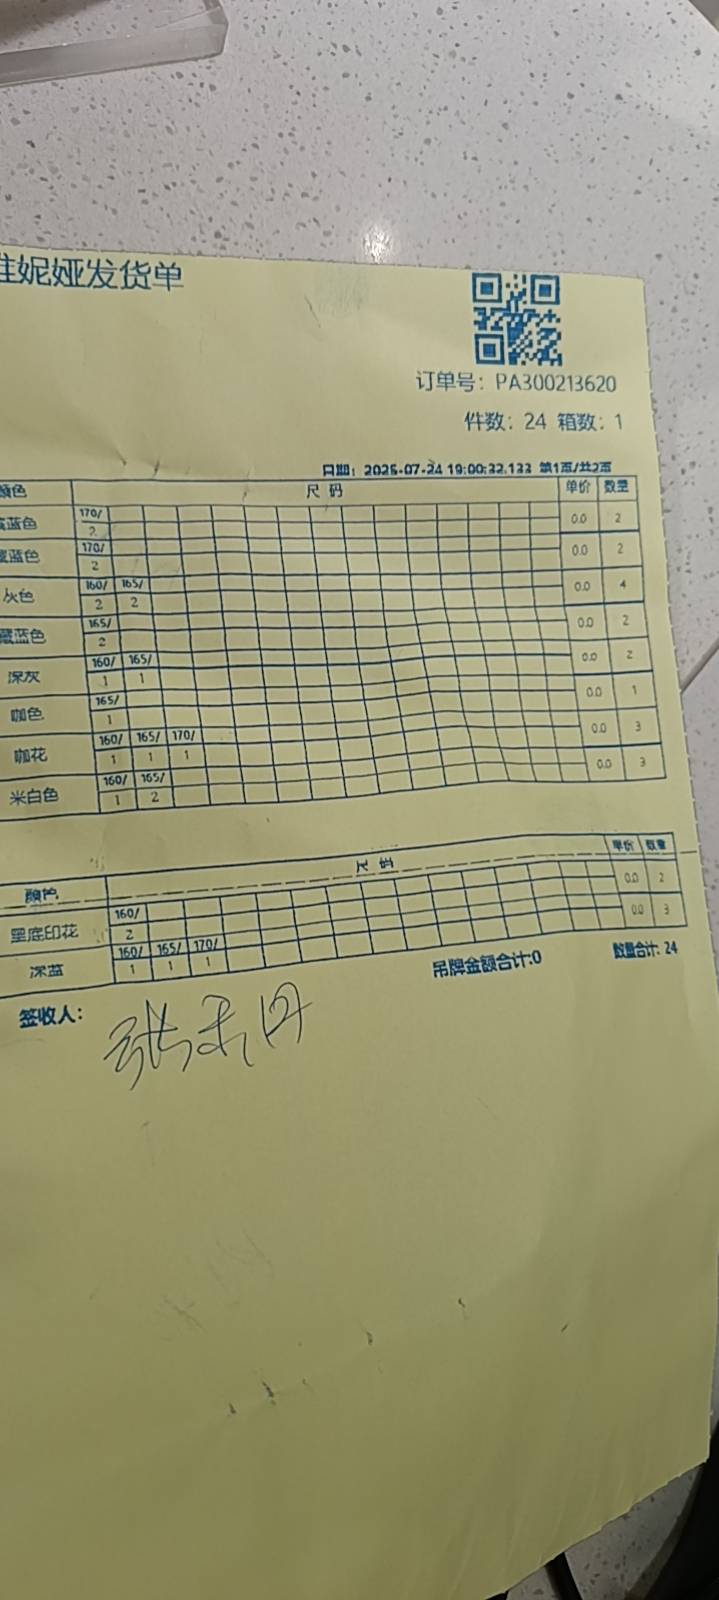 妮娅发货单
订单号：PA300213620
件数：24 箱数：1
日期：2025-07-24 19:00:32.133 第1页/共2页
颜色 尺 码 单价 数量
蓝色 170/ 0.0 2
2
蓝色 170/ 0.0 2
2
灰色 160/ 165/ 0.0 4
2 2
藏蓝色 165/ 0.0 2
2
深灰 160/ 165/ 0.0 2
1 1
咖色 165/ 0.0 1
1
咖花 160/ 165/ 170/ 0.0 3
1 1 1
米白色 160/ 165/ 0.0 3
1 2
颜色 尺 码 单价 数量
黑底印花 160/ 0.0 2
2
深蓝 160/ 165/ 170/ 0.0 3
1 1 1
签收人： 吊牌金额合计:0 数量合计: 24